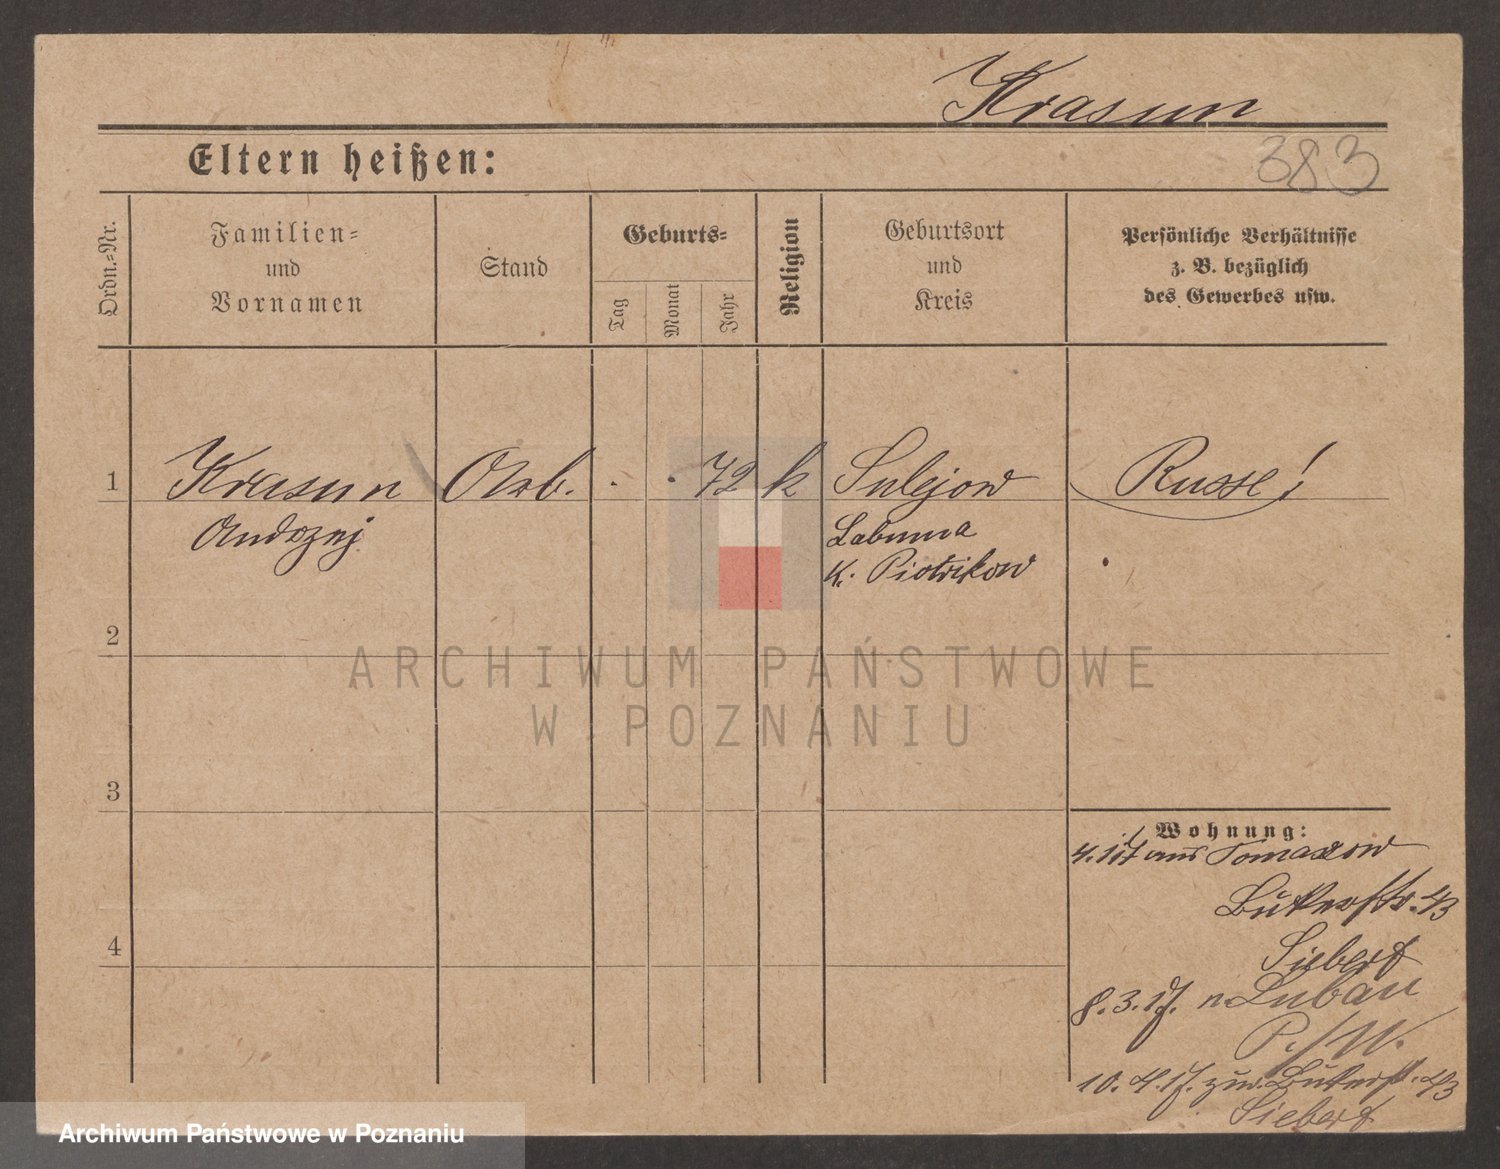 Krasun
383
Eltern heißen:
Ordn.-Nr.
Familien-
und
Vornamen
Stand
Geburts-
Tag
Monat
Jahr
Religion
Geburtsort
und
Kreis
Persönliche Verhältnisse
z. B. bezüglich
des Gewerbes usw.
1 Krasun Arb. 72 k Sulejow Russe!
Andrzej
K. Piotrikow
2
ARCHIWUM PAŃSTWOWE
W POZNANIU
3
Wohnung:
aus Tomaszow
Bukerstr. 43
Siebert
4
8.3.17. n. Lubau
P./W.
10.4.17. zur. Bukerst. 43
Siebert
Archiwum Państwowe w Poznaniu